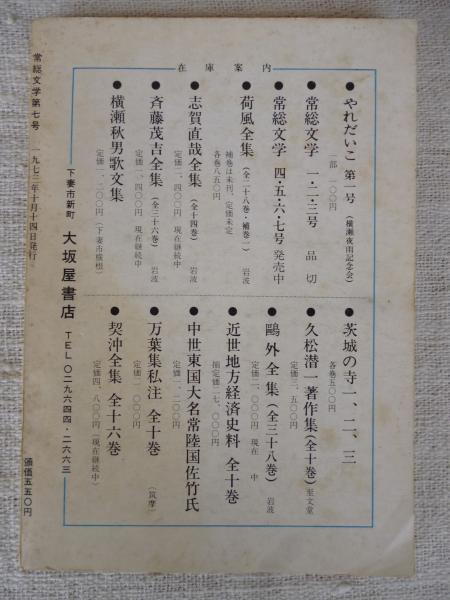 在庫案内
●やれだいこ 第一号 (横瀬夜雨記念会)
一部一〇〇円
●常総文学 一・二・三号 品切
●常総文学 四・五・六・七号 発売中
●荷風全集 (全二十八巻・補巻一) 岩波
補巻は未刊、定価未定
各巻八五〇円
●志賀直哉全集 (全十四巻) 岩波
定価一、四〇〇円 現在継続中
●斉藤茂吉全集 (全三十六巻) 岩波
定価一、四〇〇円 現在継続中
●横瀬秋男歌文集
定価一、二〇〇円 (下妻市横根)
●茨城の寺 一、二、三
各巻五〇〇円
●久松潜一著作集 (全十巻) 至文堂
定価三、五〇〇円
●鷗外全集 (全三十八巻) 岩波
定価二、〇〇〇円 現在 中
●近世地方経済史料 全十巻
揃定価二七、〇〇〇円
●中世東国大名常陸国佐竹氏
定価一、二〇〇円
●万葉集私注 全十巻 (筑摩)
定価一二、〇〇〇円
●契沖全集 全十六巻
定価四、八〇〇円 (現在継続中)
下妻市新町 大坂屋書店 TEL〇二九六四四・二六六三
常総文学第七号 一九七三年十月十四日発行
頒価五五〇円